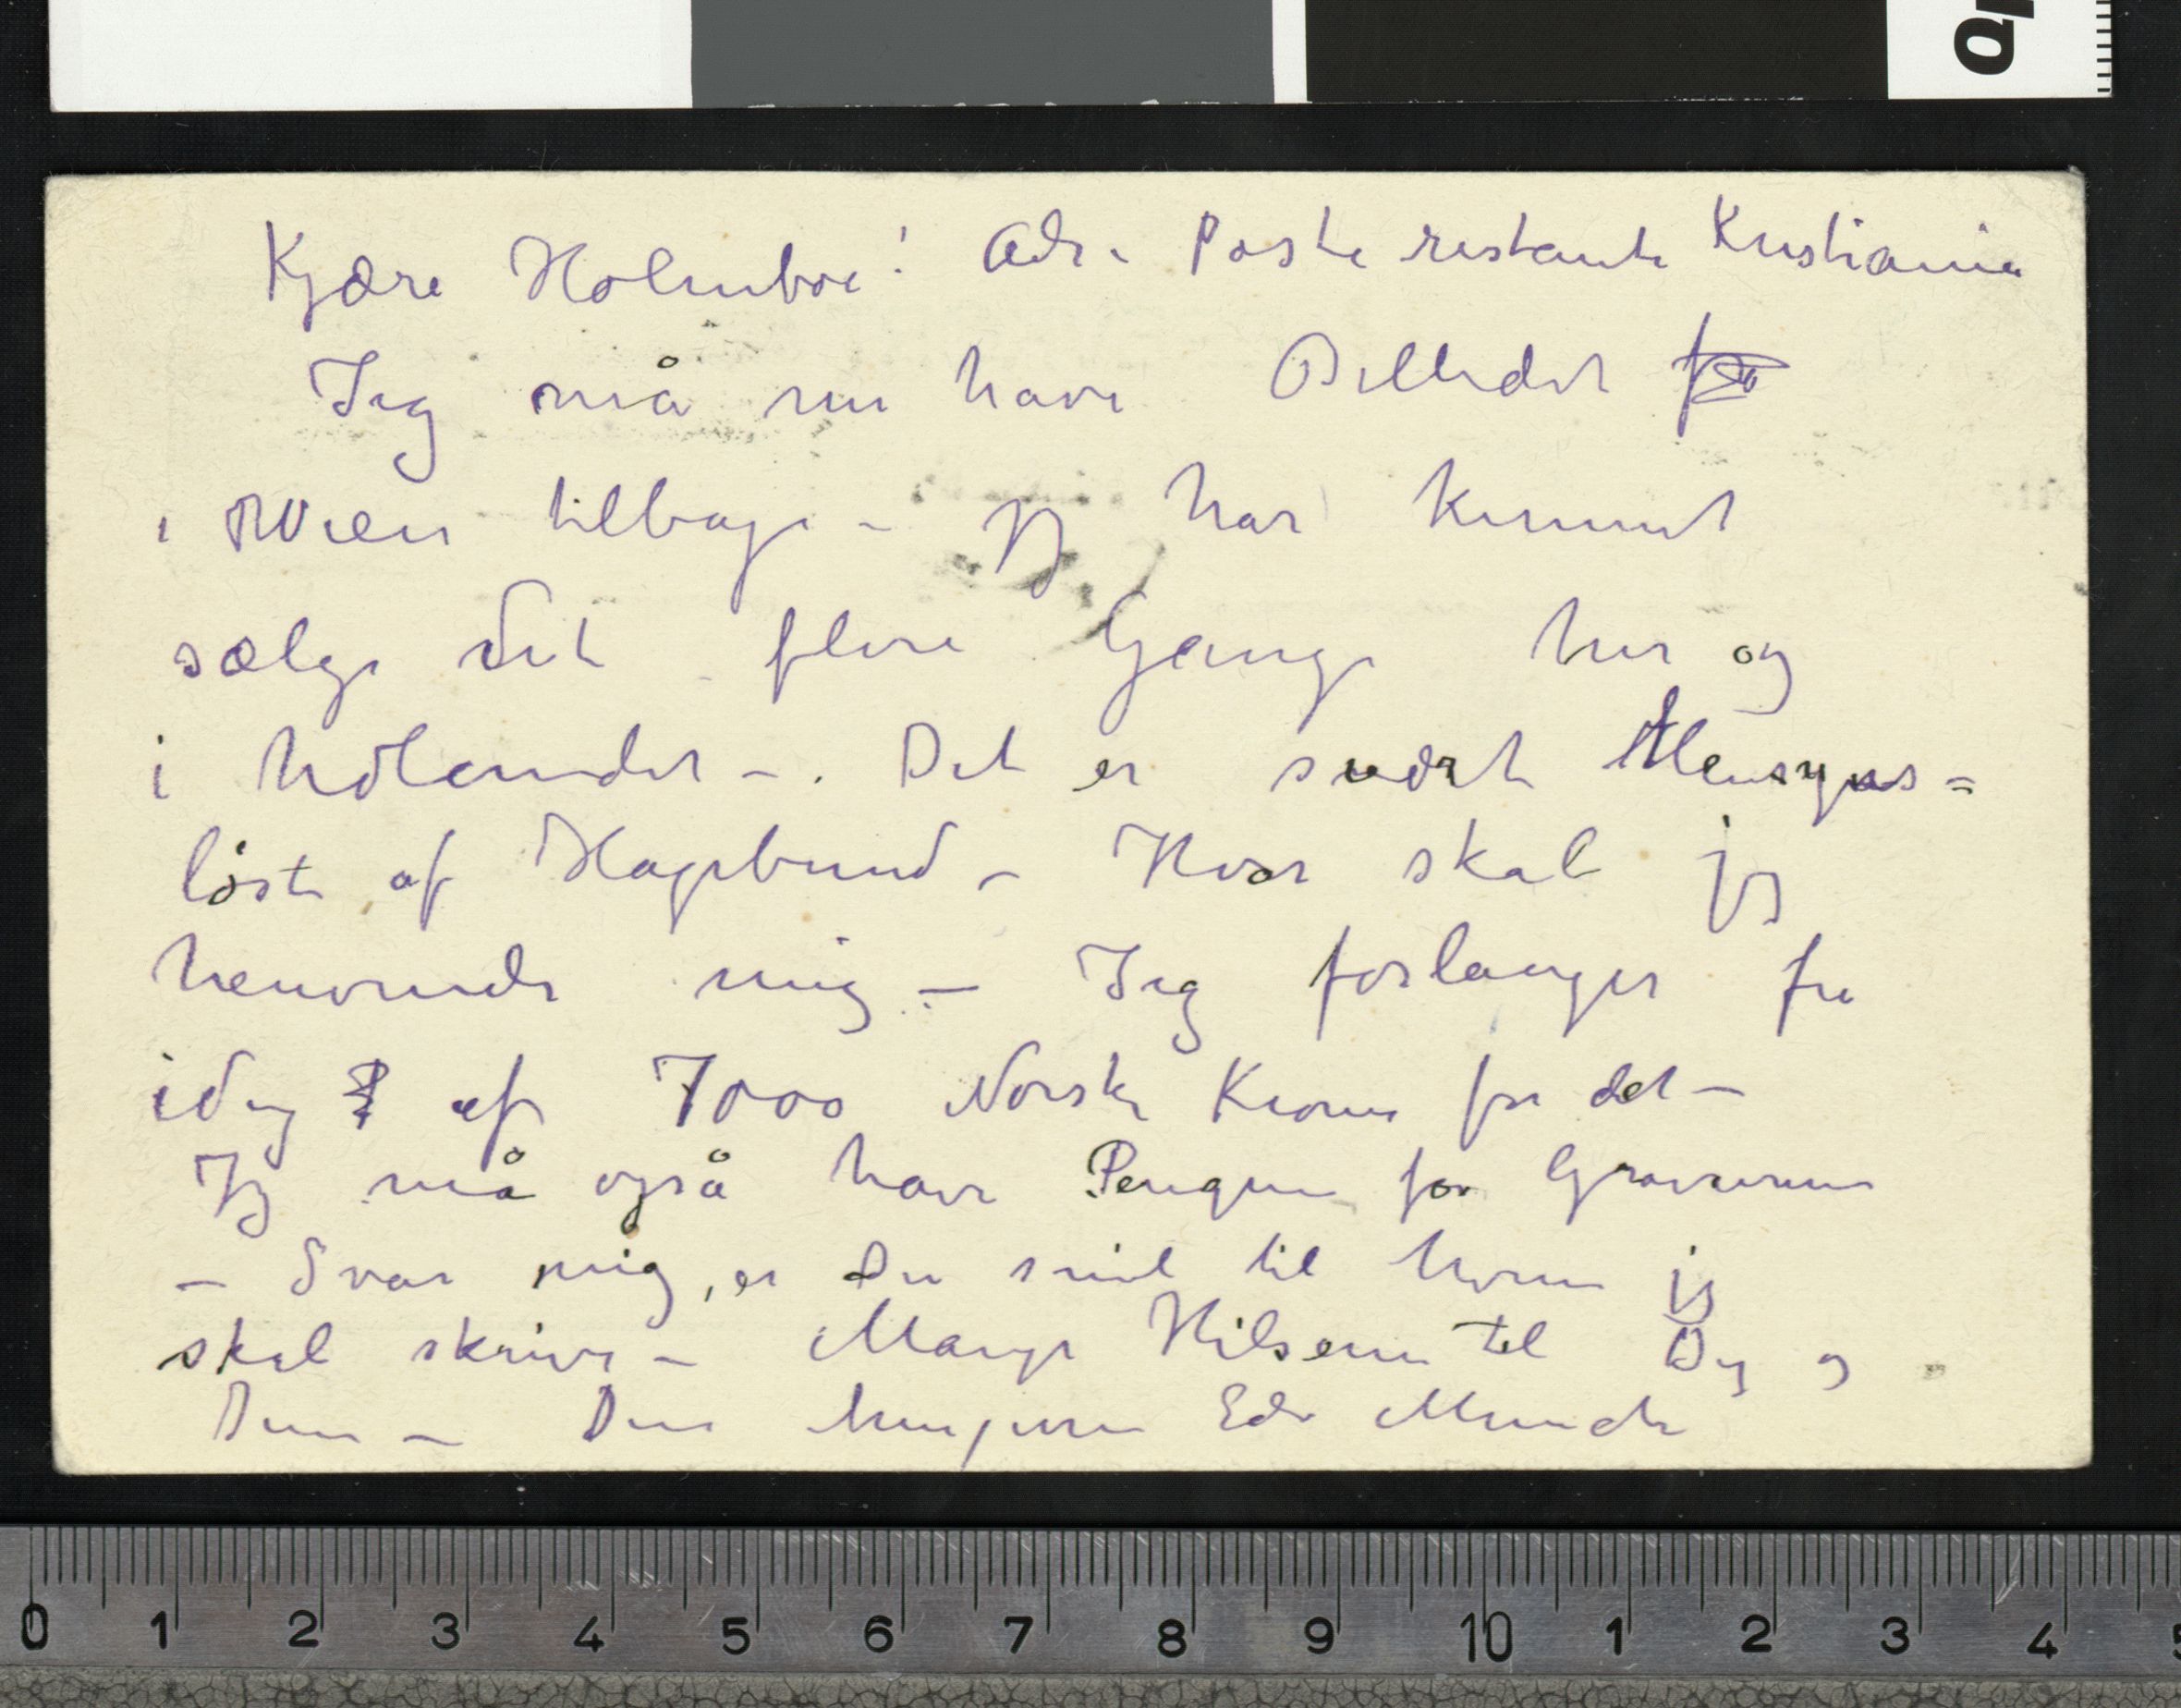 Kjære Holmboe! Adr. Poste restante Kristiania
Jeg må nu have Billedet
i Wien tilbage – Jeg har kunnet
sælge det flere Gange her og
i Udlandet –. Det er svært Hensyns=
løst af Hagebund – Hvor skal jeg
henvende mig – Jeg forlanger fra
idag af 7000 Norske Kroner for det –
Jeg må også have Pengene for Gravurerne
– Svar mig, er Du snil til hvem jeg
skal skrive – Mange Hilsener til Dig og
Din – Din hengivne Edv Munch
0 1 2 3 4 5 6 7 8 9 10 1 2 3 4 5